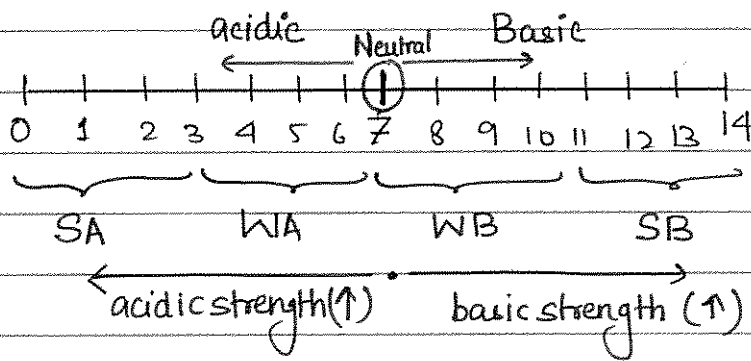 acidic Neutral Basic
0 1 2 3 4 5 6 7 8 9 10 11 12 13 14
SA WA WB SB
acidic strength (↑) basic strength (↑)